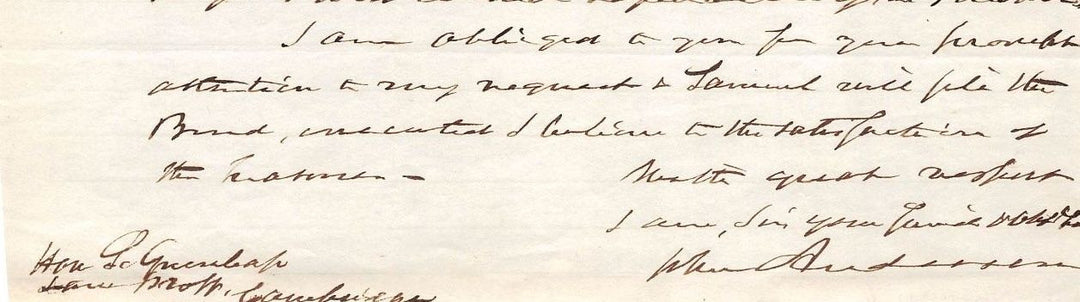 I am obliged to you for your prompt
attention to my request & Samuel will file the
Bond, executed I believe to the satisfaction of
the Treasurer –
With great respect
I am, Sir your friend & Obdt
John Anderson
Hon S. Greenleaf
Law Prof. Cambridge